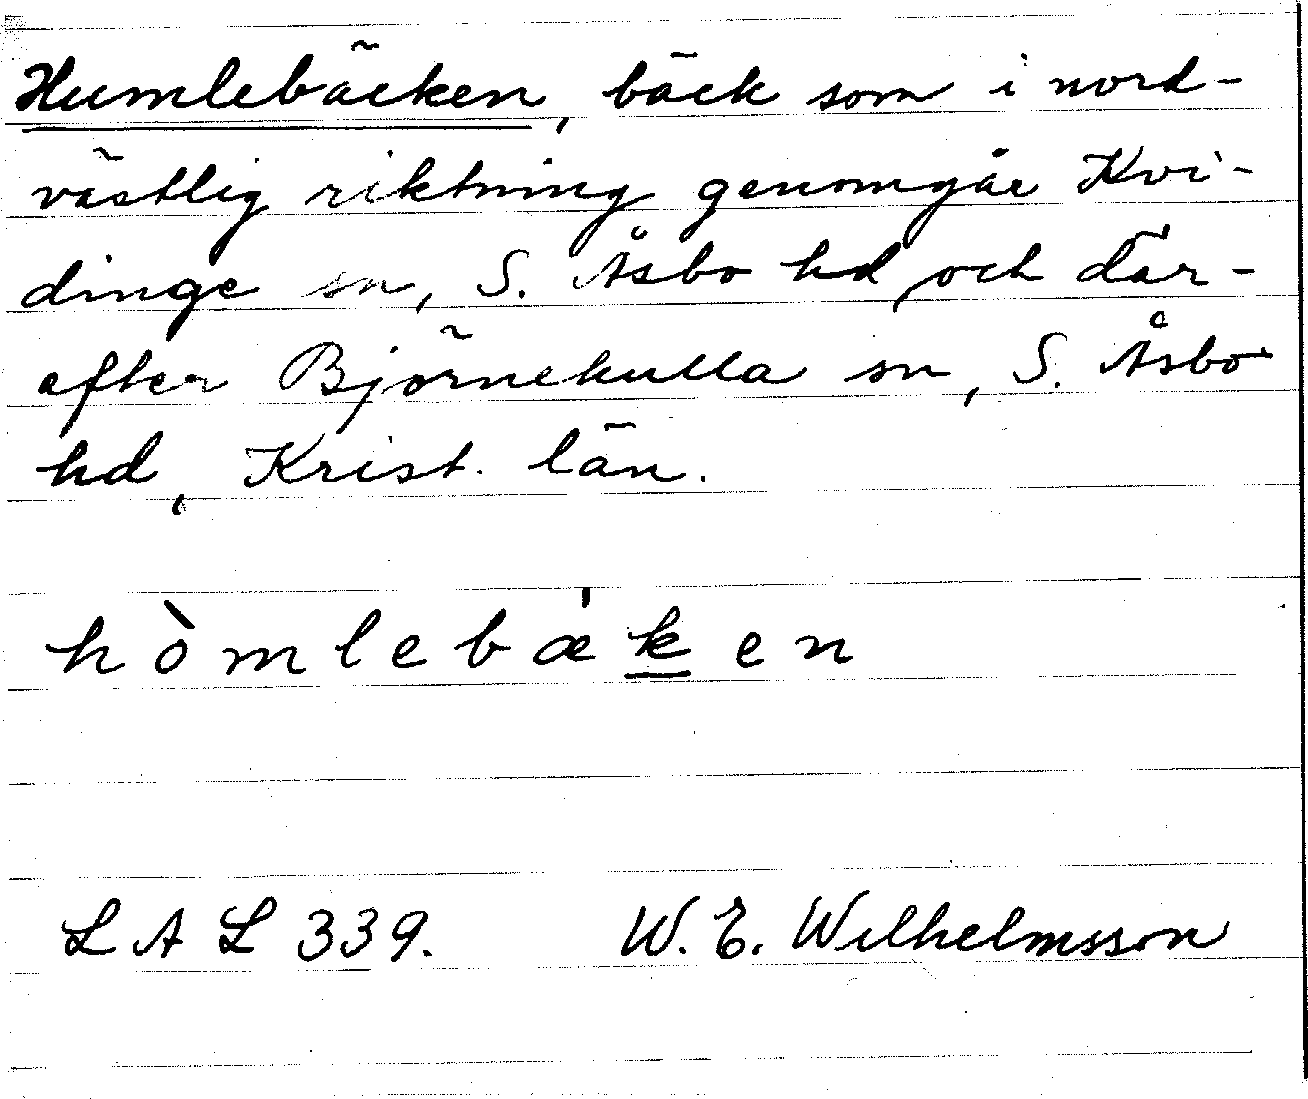 Humlebäcken, bäck som i nord-
västlig riktning genomgår Kvi-
dinge sn, S. Åsbo hd, och där-
efter Björnekulla sn, S. Åsbo
hd, Krist. län.
hòmlebæ̍k̲en
LAL 339. W. E. Wilhelmsson